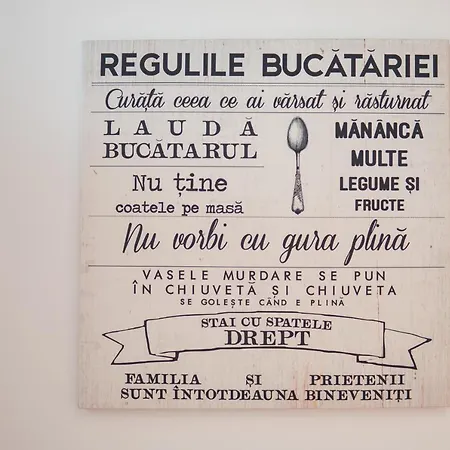 REGULILE BUCĂTĂRIEI
Curăță ceea ce ai vărsat și răsturnat
LAUDĂ
BUCĂTARUL
MĂNÂNCĂ
MULTE
LEGUME ȘI
FRUCTE
Nu ține
coatele pe masă
Nu vorbi cu gura plină
VASELE MURDARE SE PUN
ÎN CHIUVETĂ ȘI CHIUVETA
SE GOLEȘTE CÂND E PLINĂ
STAI CU SPATELE
DREPT
FAMILIA ȘI PRIETENII
SUNT ÎNTOTDEAUNA BINEVENIȚI